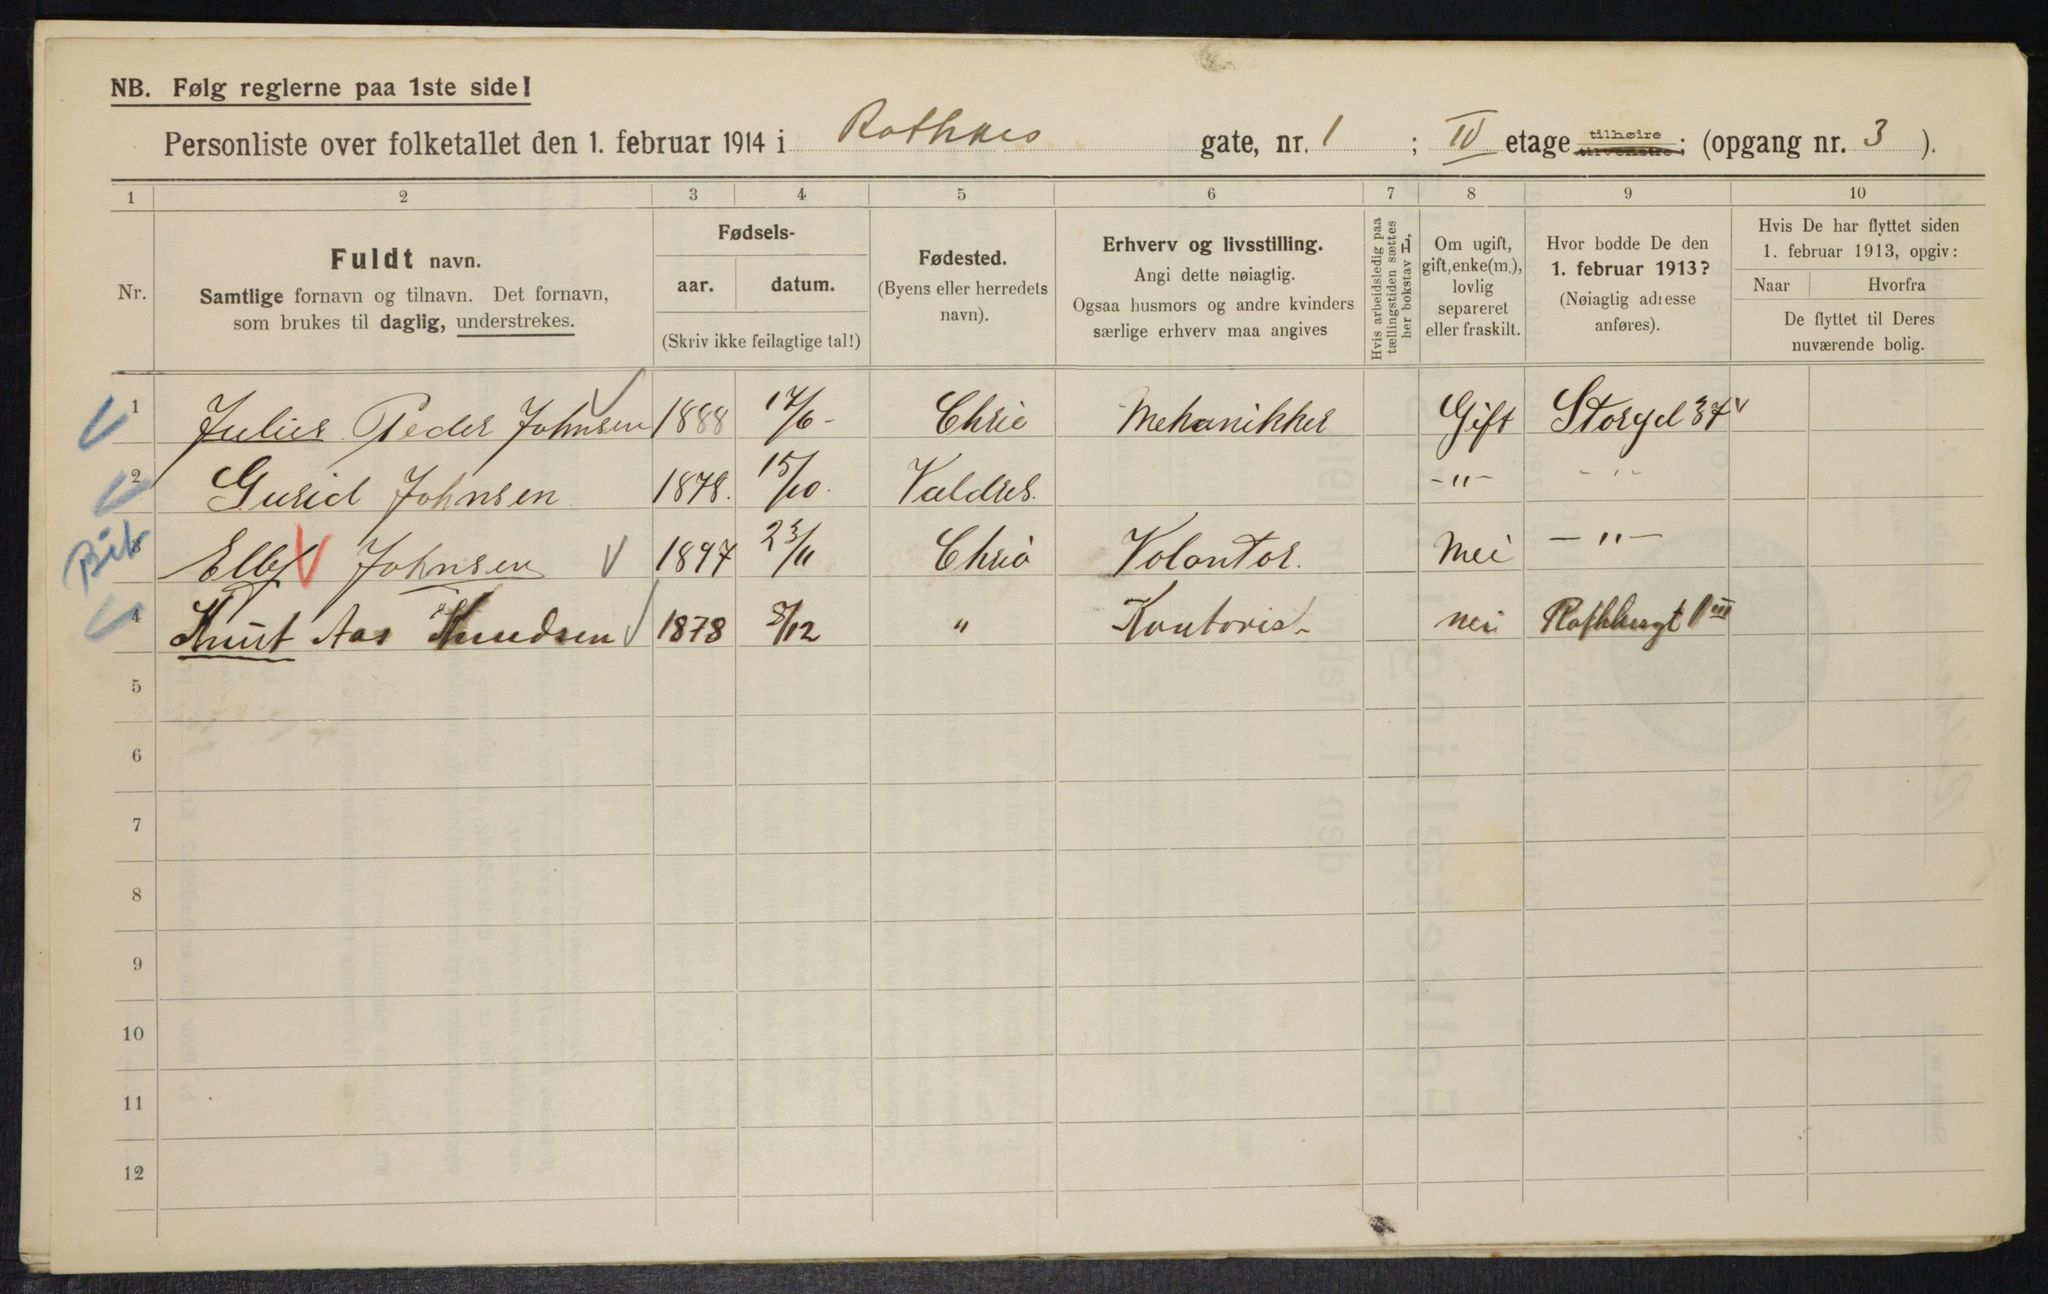 NB. Følg reglerne paa 1ste side!
Personliste over folketallet den 1. februar 1914 i Rathkes gate, nr. 1 ; IV etage tilhøire tilvenstre; (opgang nr. 3 ).
1 2 3 4 5 6 7 8 9 10
Nr.
Fuldt navn.
Samtlige fornavn og tilnavn. Det fornavn,
som brukes til daglig, understrekes.
Fødsels-
aar. datum.
(Skriv ikke feilagtige tal!)
Fødested.
(Byens eller herredets
navn).
Erhverv og livsstilling.
Angi dette nøiagtig.
Ogsaa husmors og andre kvinders
særlige erhverv maa angives
Hvis arbeidsledig paa
tællingstiden sættes
her bokstav L,
Om ugift,
gift, enke(m.),
lovlig
separeret
eller fraskilt.
Hvor bodde De den
1. februar 1913?
(Nøiagtig adresse
anføres).
Hvis De har flyttet siden
1. februar 1913, opgiv:
Naar Hvorfra
De flyttet til Deres
nuværende bolig.
1 Julius Peder Johnsen 1888 17/6- Chria Mekanikker Gift Storgd 37 v
2 Gurid Johnsen 1878. 15/10. Valdres. -"- -"-
Bit 3 Johnsen 1897 23/11 Chria Volontør. Nei -"-
4 Knut Aas Knudsen 1878 8/12 " Kontorist nei 1 III
5
6
7
8
9
10
11
12